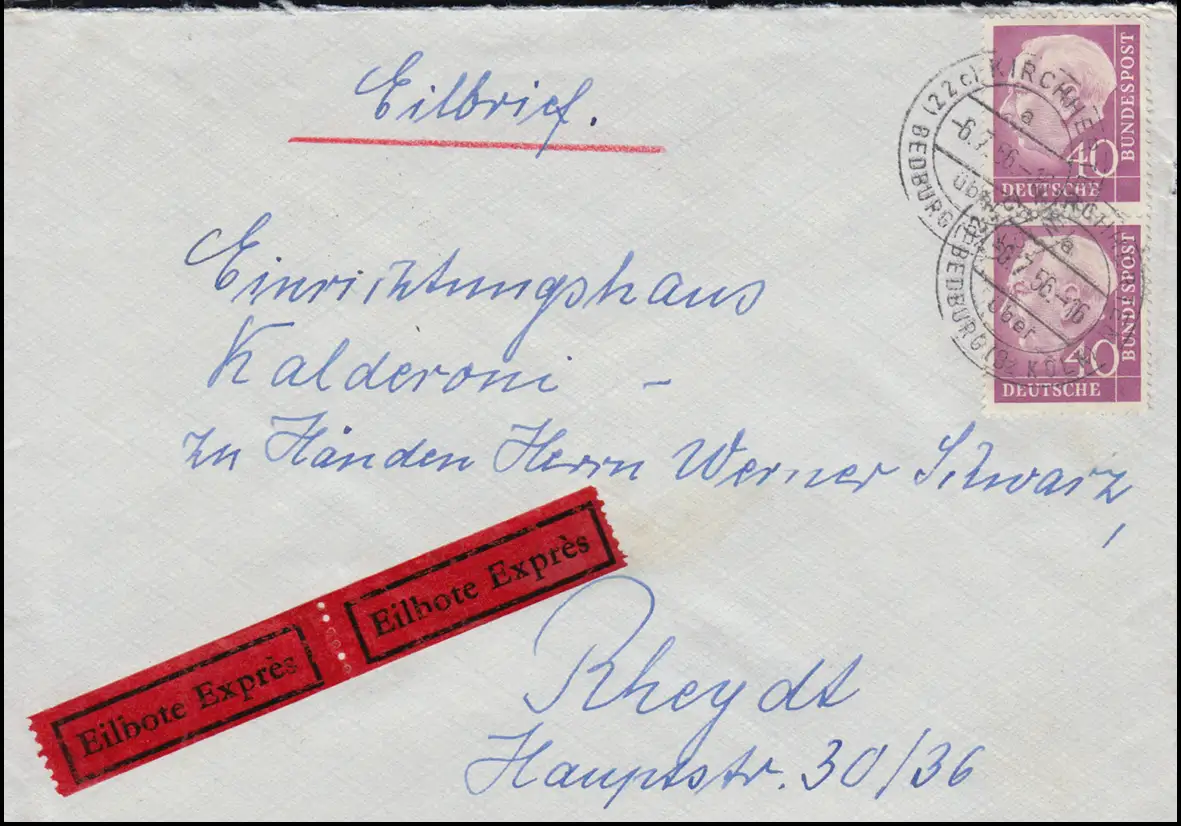 Eilbrief.
BUNDESPOST
40
DEUTSCHE
(22c) KIRCHHE
a
-6.7.56.-
über
BEDBURG (Bz
BUNDESPOST
40
DEUTSCHE
a
7.56.-16
über
BEDBURG (Bz KÖLN)
Einrichtungshaus
Kalderoni -
zu Händen Herrn Werner Schwarz,
Eilbote Exprès
Eilbote Exprès
Rheydt
Hauptstr. 30/36